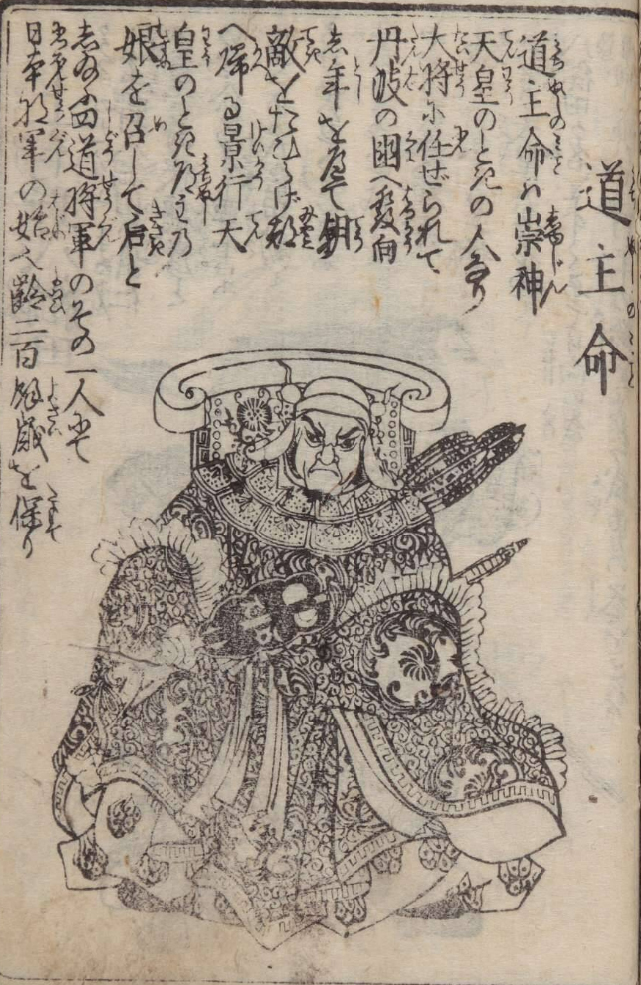 道主命
道主命ハ崇神
天皇のときの人なり
大将に任ぜられて
丹波の国へ発向
し年を歴て朝
敵をたひらげ都
へ帰る景行天
皇のとき道主乃
娘を召して后と
し給ふ四道将軍のその一人にて
日本将軍の始也齢二百余歳を保り